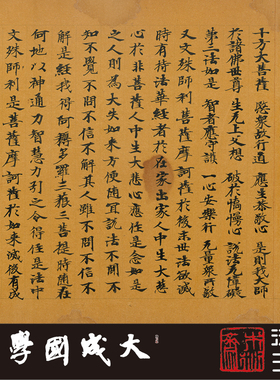 十方大菩薩 愍衆故行道 應生恭敬心 是則我大師
於諸佛世尊 生无上父想 破於憍慢心 說法无障礙
第三法如是 智者應守護 一心安樂行 无量衆所敬
又文殊師利菩薩摩訶薩於後末世法欲滅
時有持法華經者於在家出家人中生大慈
心於非菩薩人中生大悲心應作是念如是
之人則為大失如来方便隨宜說法不聞不
知不覺不問不信不解其人雖不問不信不
解是經我得阿耨多羅三藐三菩提時隨在
何地以神通力智慧力引之令得住是法中
文殊師利是菩薩摩訶薩於如来滅後有成
大成國學